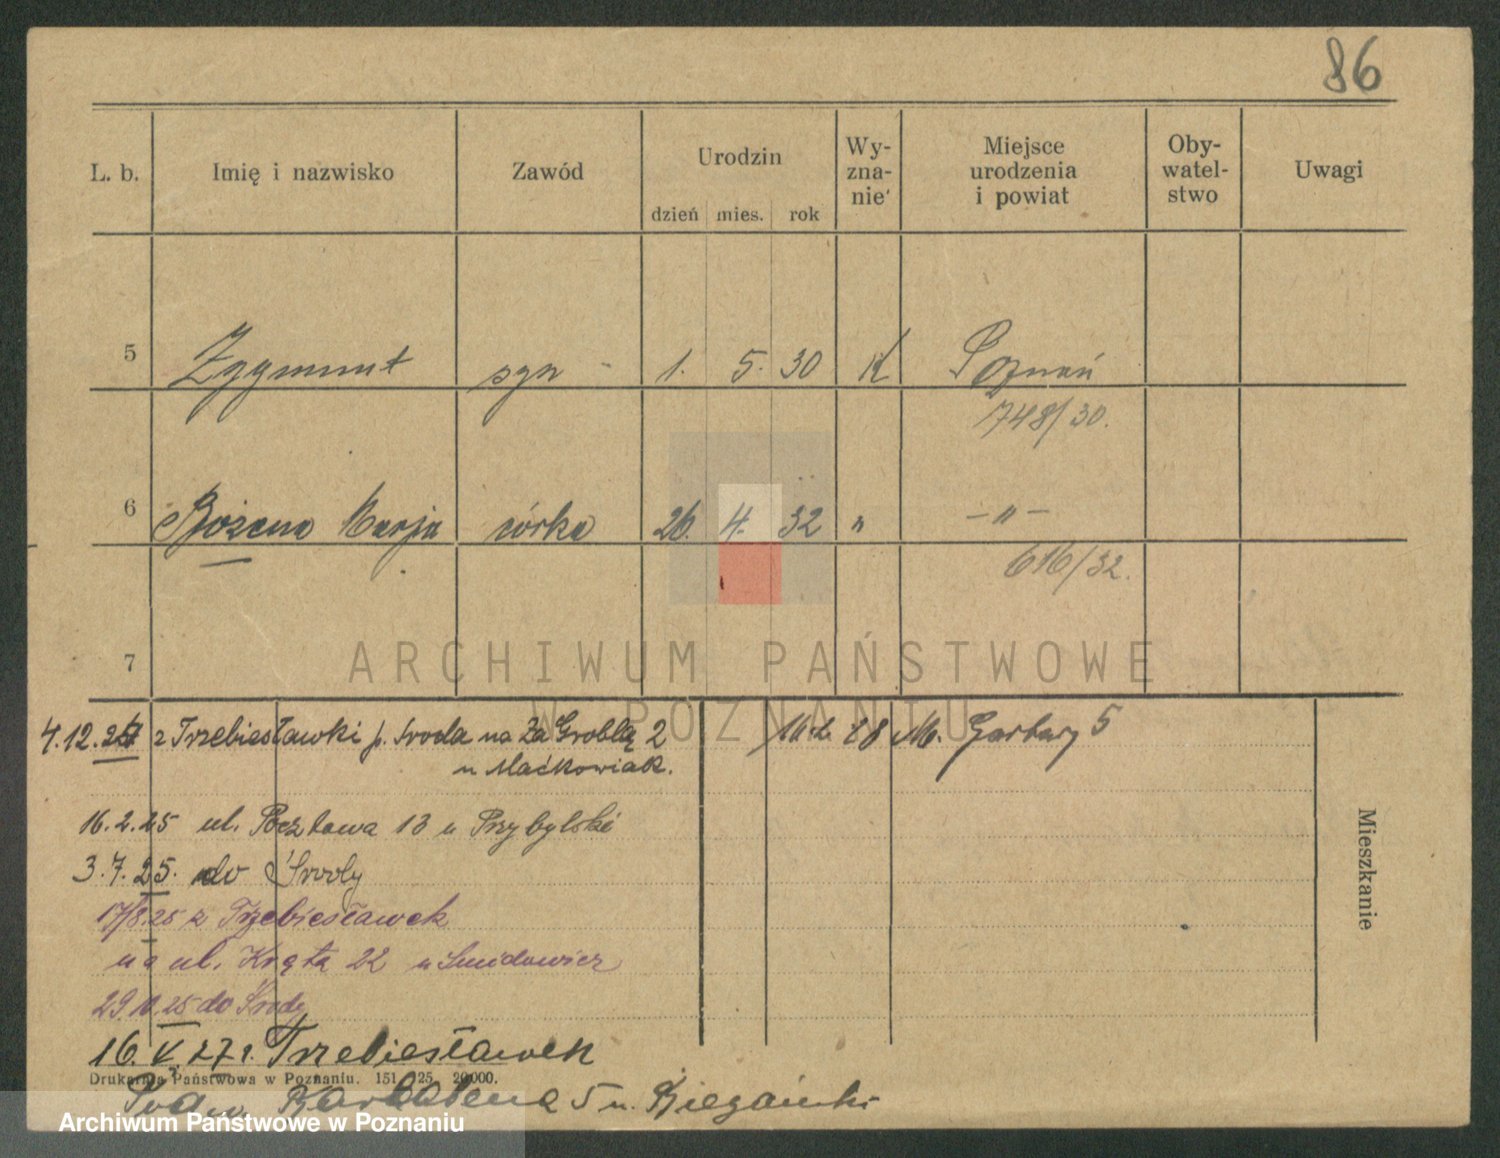 86
L. b. Imię i nazwisko Zawód Urodzin dzień mies. rok Wy-zna-nie Miejsce urodzenia i powiat Oby-watel-stwo Uwagi
5 Zygmunt syn - 1. 5. 30 K Poznań
748/30.
6 Bożena Marja córka 26. 4. 32 " - " -
616/32.
7
ARCHIWUM PAŃSTWOWE
W POZNANIU
4.12.24 z Trzebiesławki p. Środa na Za Groblą 2
u Maćkowiak.
28 M. Garbary 5
16.2.25 ul. Pocztowa 13 u Przybylski
3.7.25. do Środy
17/8.25 z Trzebiesławek
na ul. Kręta 22 u Smidowicz
29.10.25 do Środy
16.V.27 r. Trzebiesławek
Mieszkanie
Drukarnia Państwowa w Poznaniu. 151 25 20000.
5 u.
Archiwum Państwowe w Poznaniu